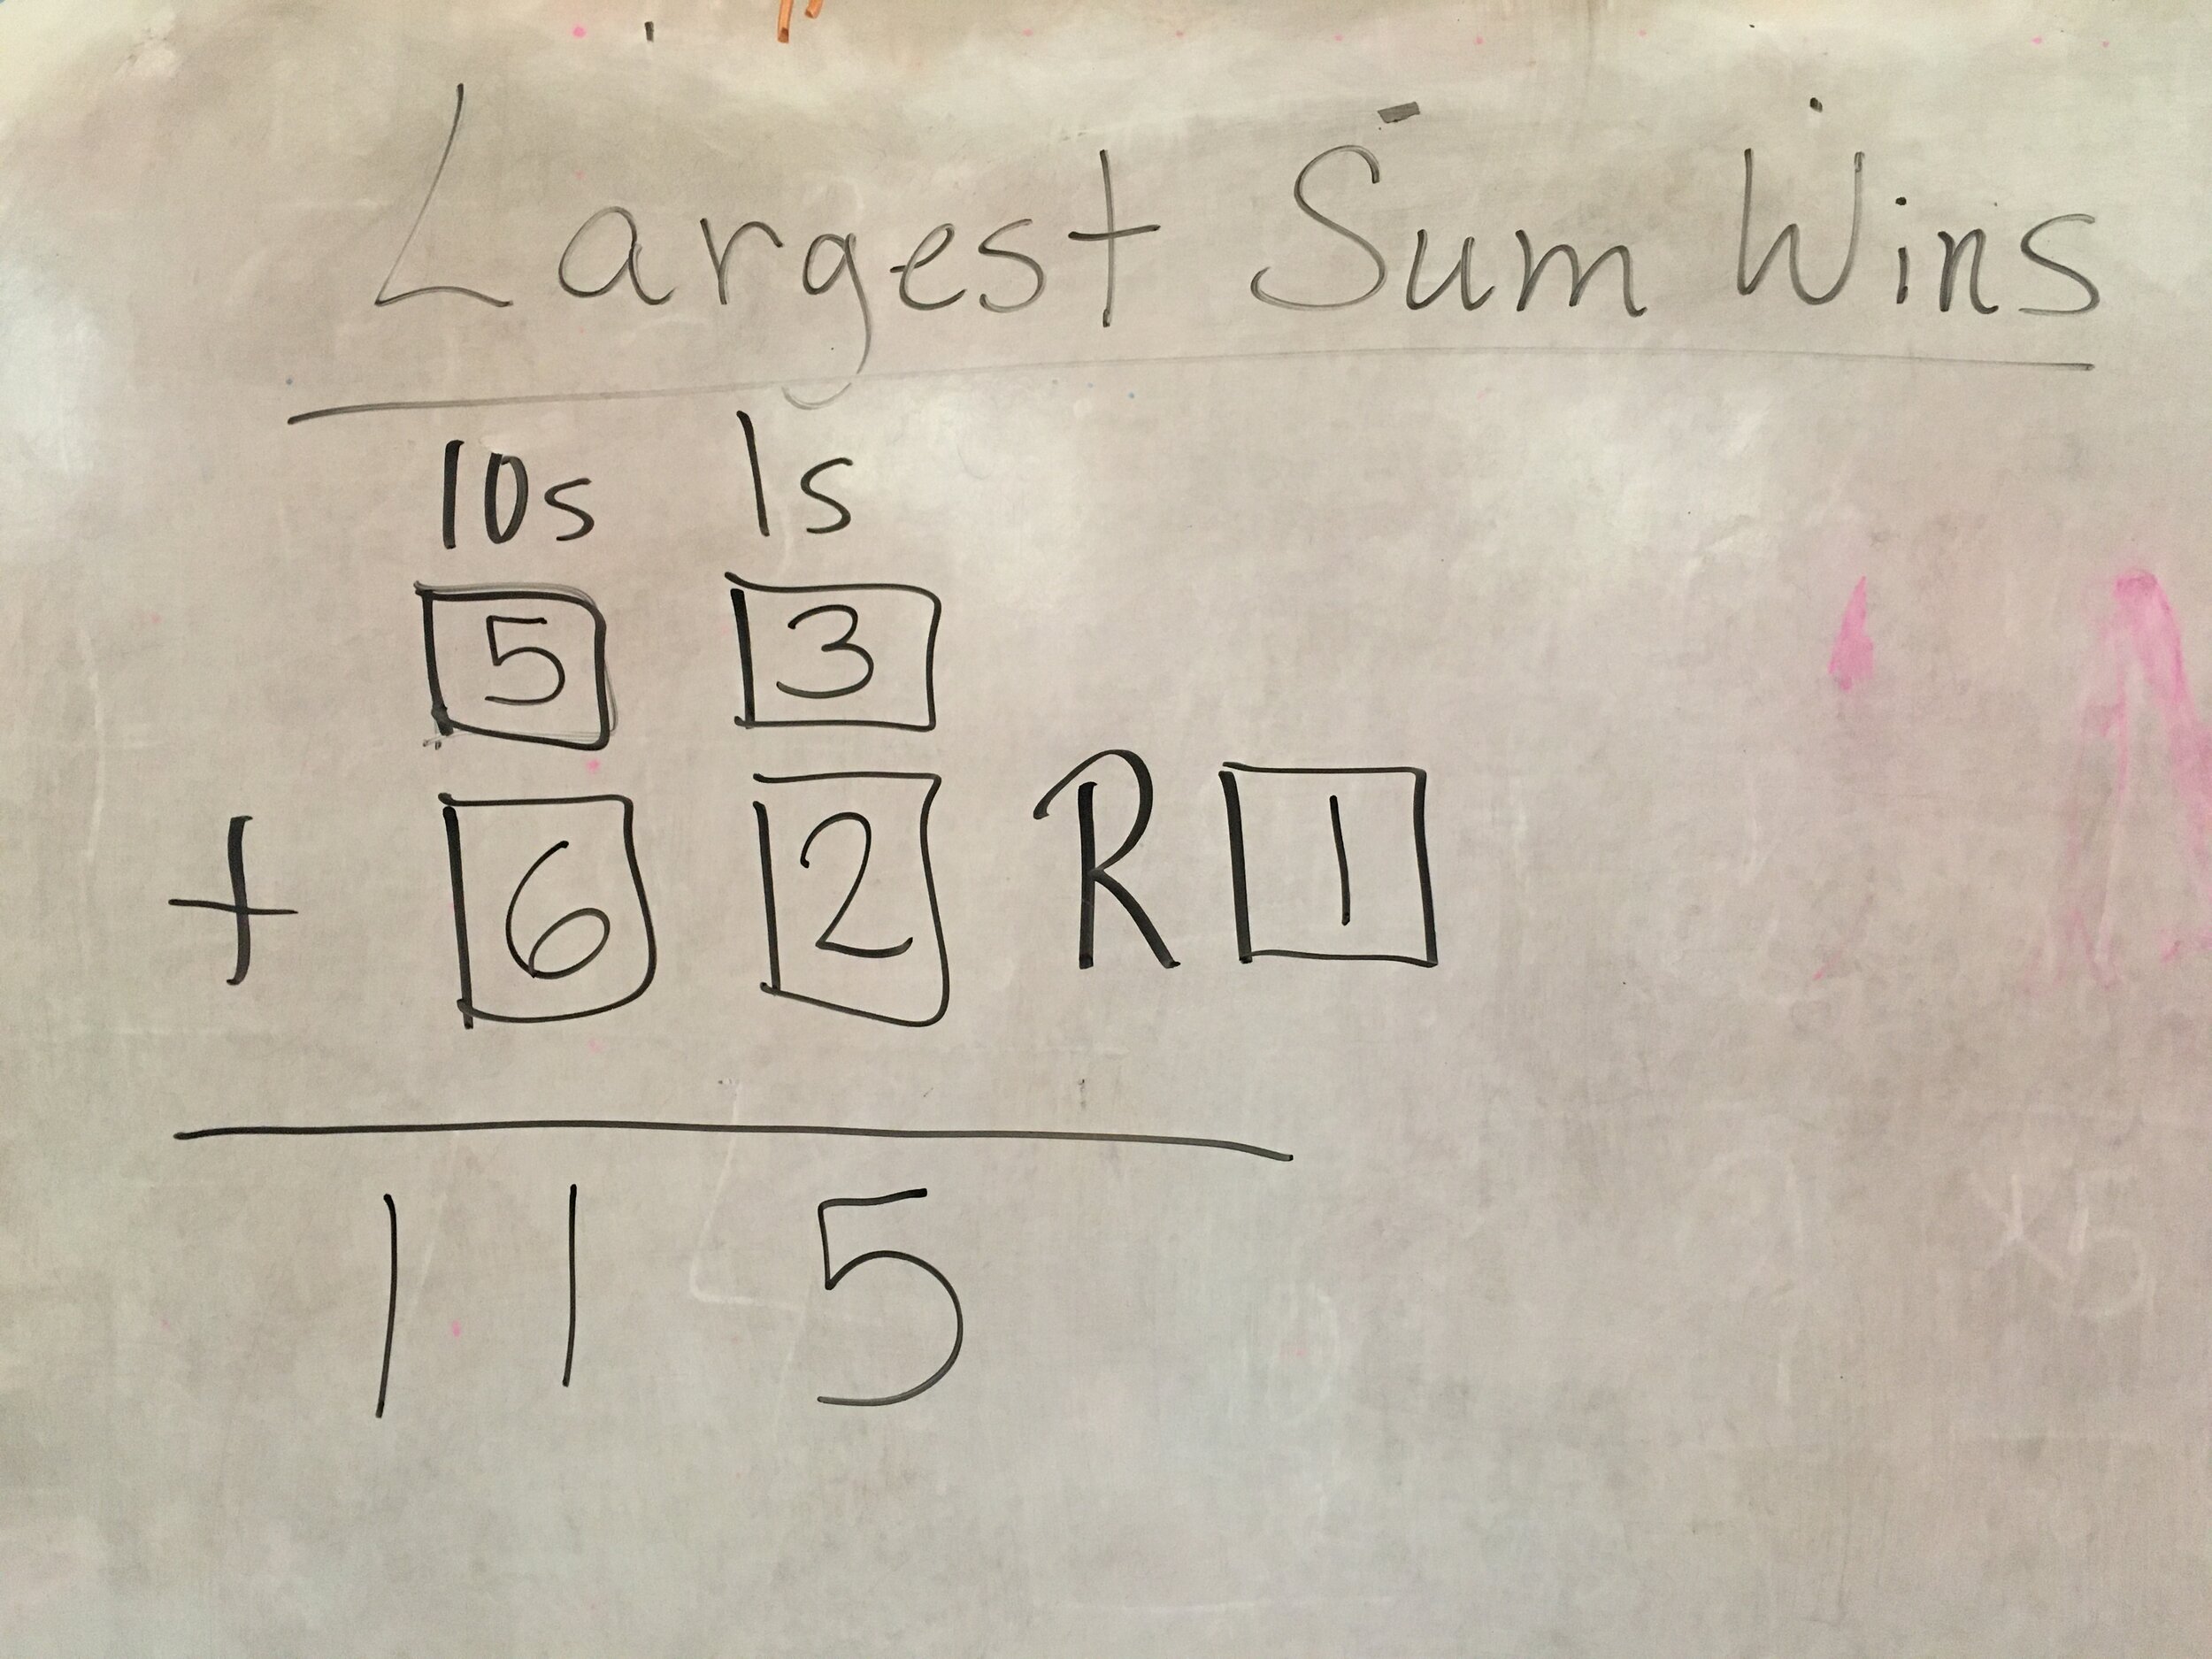 Largest Sum Wins
10s 1s
5 3
+ 6 2 R 1
115